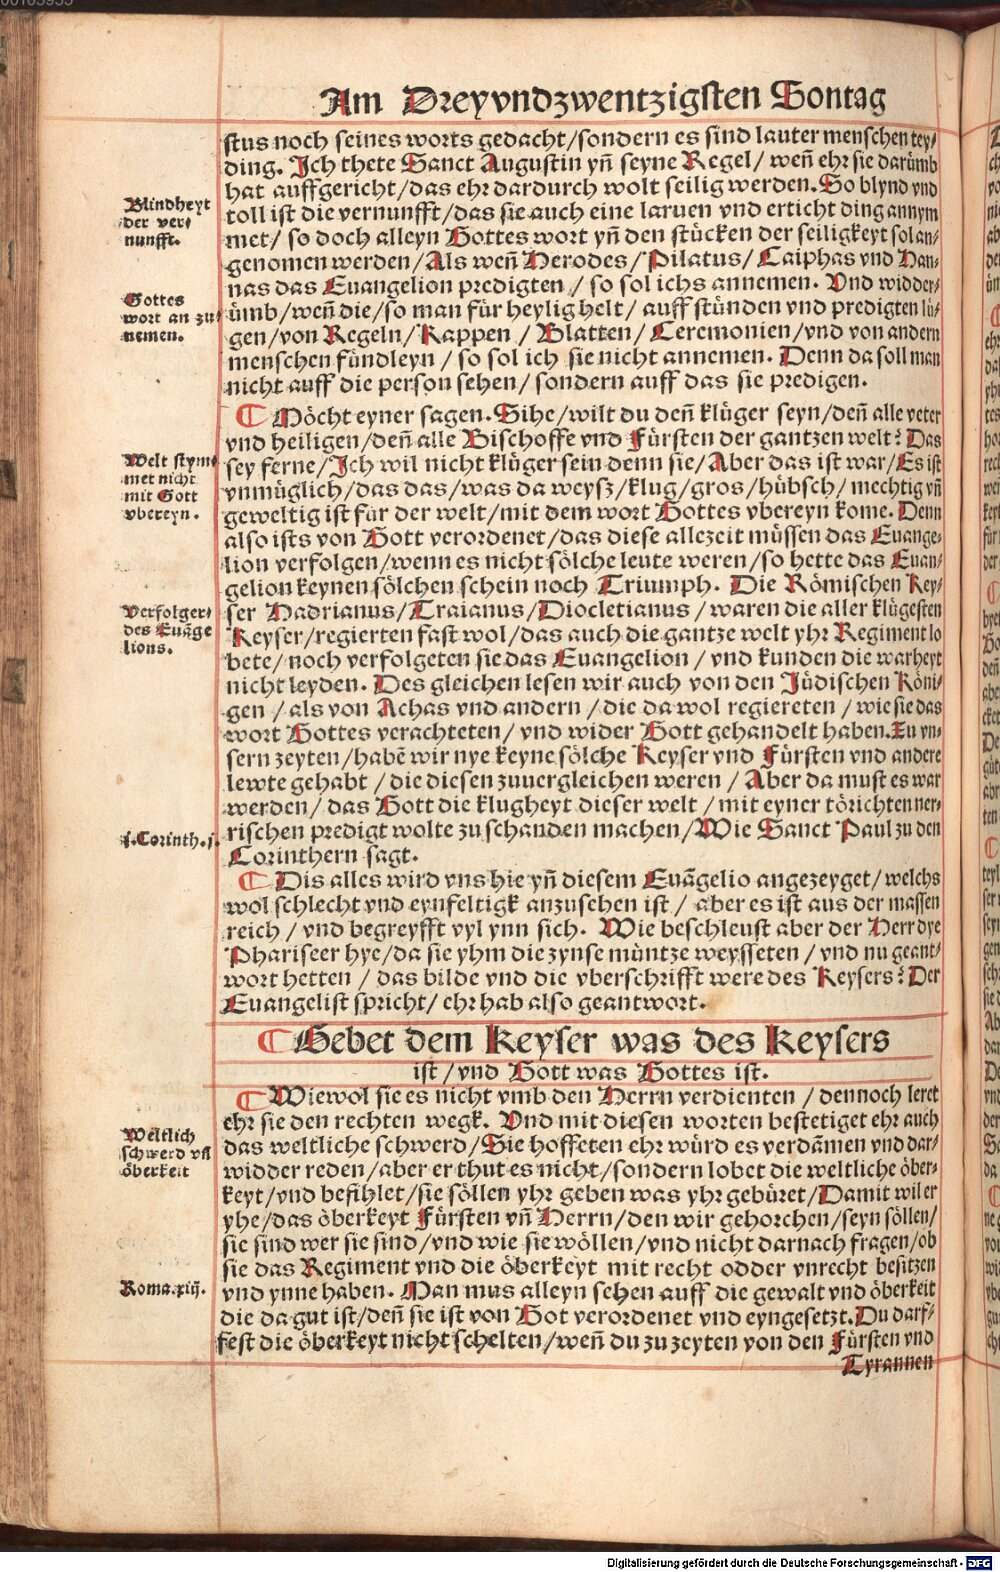 Am Dreyvndzwentzigsten Sontag
stus noch seines worts gedacht/sondern es sind lauter menschen tey⸗
ding. Ich thete Sanct Augustin yñ seyne Regel/ weñ ehr sie darůmb
hat auffgericht/das ehr dardurch wolt seilig werden. So blynd vnd
toll ist die vernunfft/das sie auch eine laruen vnd erticht ding annym
met/ so doch alleyn Gottes wort yñ den stücken der seiligkeyt sol an⸗
genomen werden/Als weñ Herodes/Pilatus/ Caiphas vnd Han⸗
nas das Euangelion predigten/ so sol ichs annemen. Vnd widder⸗
ůmb/weñ die/so man für heylig helt/ auff stůnden vnd predigten lü⸗
gen/von Regeln/Kappen/ Blatten/ Ceremonien/vnd von andern
menschen fündleyn/so sol ich sie nicht annemen. Denn da soll man
nicht auff die person sehen/ sondern auff das sie predigen.
Blindheyt
der ver⸗
nunfft.
Gottes
wort an zu⸗
nemen.
¶ Möcht eyner sagen. Sihe/wilt du deñ klüger seyn/deñ alle veter
vnd heiligen/deñ alle Bischoffe vnd Fürsten der gantzen welt? Das
sey ferne/Ich wil nicht klüger sein denn sie/Aber das ist war/Es ist
vnmüglich/das das/was da weysz/klug/gros/hübsch/mechtig vñ
geweltig ist für der welt/mit dem wort Gottes vbereyn kome. Denn
also ists von Gott verordenet/das diese allezeit müssen das Euange⸗
lion verfolgen/wenn es nicht sölche leute weren/so hette das Euan⸗
gelion keynen sölchen schein noch Triumph. Die Römischen Key⸗
ser Hadrianus/Traianus/Diocletianus/waren die aller klügesten
Keyser/regierten fast wol/das auch die gantze welt yhr Regiment lo
bete/noch verfolgeten sie das Euangelion/vnd kunden die warheyt
nicht leyden. Des gleichen lesen wir auch von den Jüdischen Köni⸗
gen/als von Achas vnd andern/die da wol regiereten/wie sie das
wort Gottes verachteten/ vnd wider Gott gehandelt haben. Zu vn⸗
sern zeyten/habē wir nye keyne sölche Keyser vnd Fürsten vnd andere
lewte gehabt/die diesen zuuergleichen weren/Aber da must es war
werden/das Gott die klugheyt dieser welt/mit eyner törichten ner⸗
rischen predigt wolte zu schanden machen/Wie Sanct Paul zu den
Corinthern sagt.
Welt stym⸗
met nicht
mit Gott
vbereyn.
Verfolger⸗
des Euāge
lions.
j.Corinth.j.
¶ Dis alles wird vns hie yñ diesem Euāgelio angezeyget/welchs
wol schlecht vnd eynfeltigk anzusehen ist/ aber es ist aus der massen
reich/vnd begreyfft vyl ynn sich. Wie beschleust aber der Herr dye
Phariseer hye/da sie yhm die zynse müntze weysseten/vnd nu geant⸗
wort hetten/das bilde vnd die vberschrifft were des Keysers? Der
Euangelist spricht/ehr hab also geantwort.
¶ Gebet dem Keyser was des Keysers
ist/vnd Gott was Gottes ist.
¶ Wiewol sie es nicht vmb den Herrn verdienten/dennoch leret
ehr sie den rechten wegk. Vnd mit diesen worten bestetiget ehr auch
das weltliche schwerd/Sie hoffeten ehr würd es verdāmen vnd dar⸗
widder reden/aber er thut es nicht/sondern lobet die weltliche öber⸗
keyt/vnd befihlet/sie söllen yhr geben was yhr gebüret/Damit wil er
yhe/das öberkeyt Fürsten vñ Herrn/den wir gehorchen/seyn söllen/
sie sind wer sie sind/vnd wie sie wöllen/vnd nicht darnach fragen/ob
sie das Regiment vnd die öberkeyt mit recht odder vnrecht besitzen
vnd ynne haben. Man mus alleyn sehen auff die gewalt vnd öberkeit
die da gut ist/deñ sie ist von Got verordenet vnd eyngesetzt. Du darf⸗
fest die öberkeyt nicht schelten/weñ du zu zeyten von den Fürsten vnd
Tyrannen
Weltlich
schwerd vñ
öberkeit
Roma.xiij.
Digitalisierung gefördert durch die Deutsche Forschungsgemeinschaft - DFG